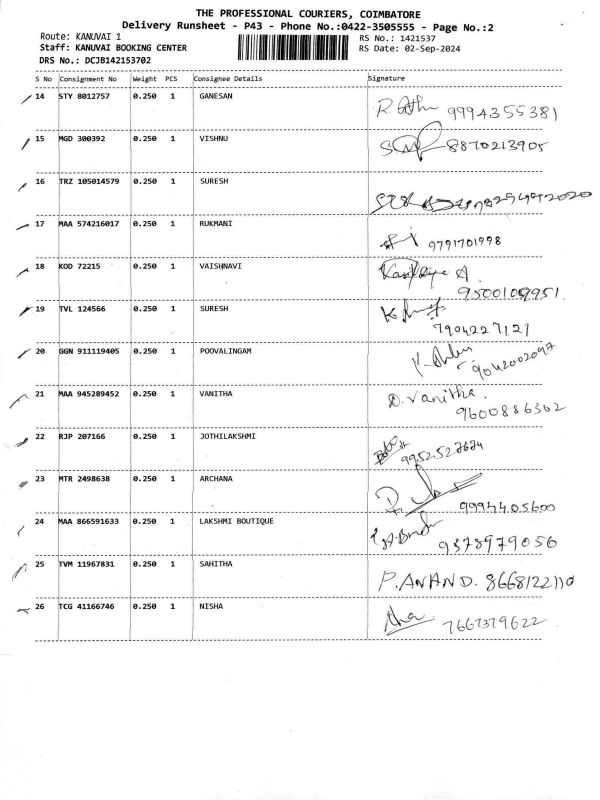 THE PROFESSIONAL COURIERS, COIMBATORE
Delivery Runsheet - P43 - Phone No.:0422-3505555 - Page No.:2
Route: KANUVAI 1
RS No.: 1421537
Staff: KANUVAI BOOKING CENTER
RS Date: 02-Sep-2024
DRS No.: DCJB142153702
S No Consignment No Weight PCS Consignee Details Signature
14 STY 8012757 0.250 1 GANESAN
9994355381
15 MGD 300392 0.250 1 VISHNU
8870213905
16 TRZ 105014579 0.250 1 SURESH
17 MAA 574216017 0.250 1 RUKMANI
9791701998
18 KOD 72215 0.250 1 VAISHNAVI
9500109951
19 TVL 124566 0.250 1 SURESH
7904227121
20 GGN 911119405 0.250 1 POOVALINGAM
9042002097
21 MAA 945289452 0.250 1 VANITHA D. Vanitha
9600886362
22 RJP 207166 0.250 1 JOTHILAKSHMI
9952527674
23 MTR 2498638 0.250 1 ARCHANA
9994405600
24 MAA 866591633 0.250 1 LAKSHMI BOUTIQUE
9378979056
25 TVM 11967831 0.250 1 SAHITHA
P. ANAND. 8668122110
26 TCG 41166746 0.250 1 NISHA
7667379622